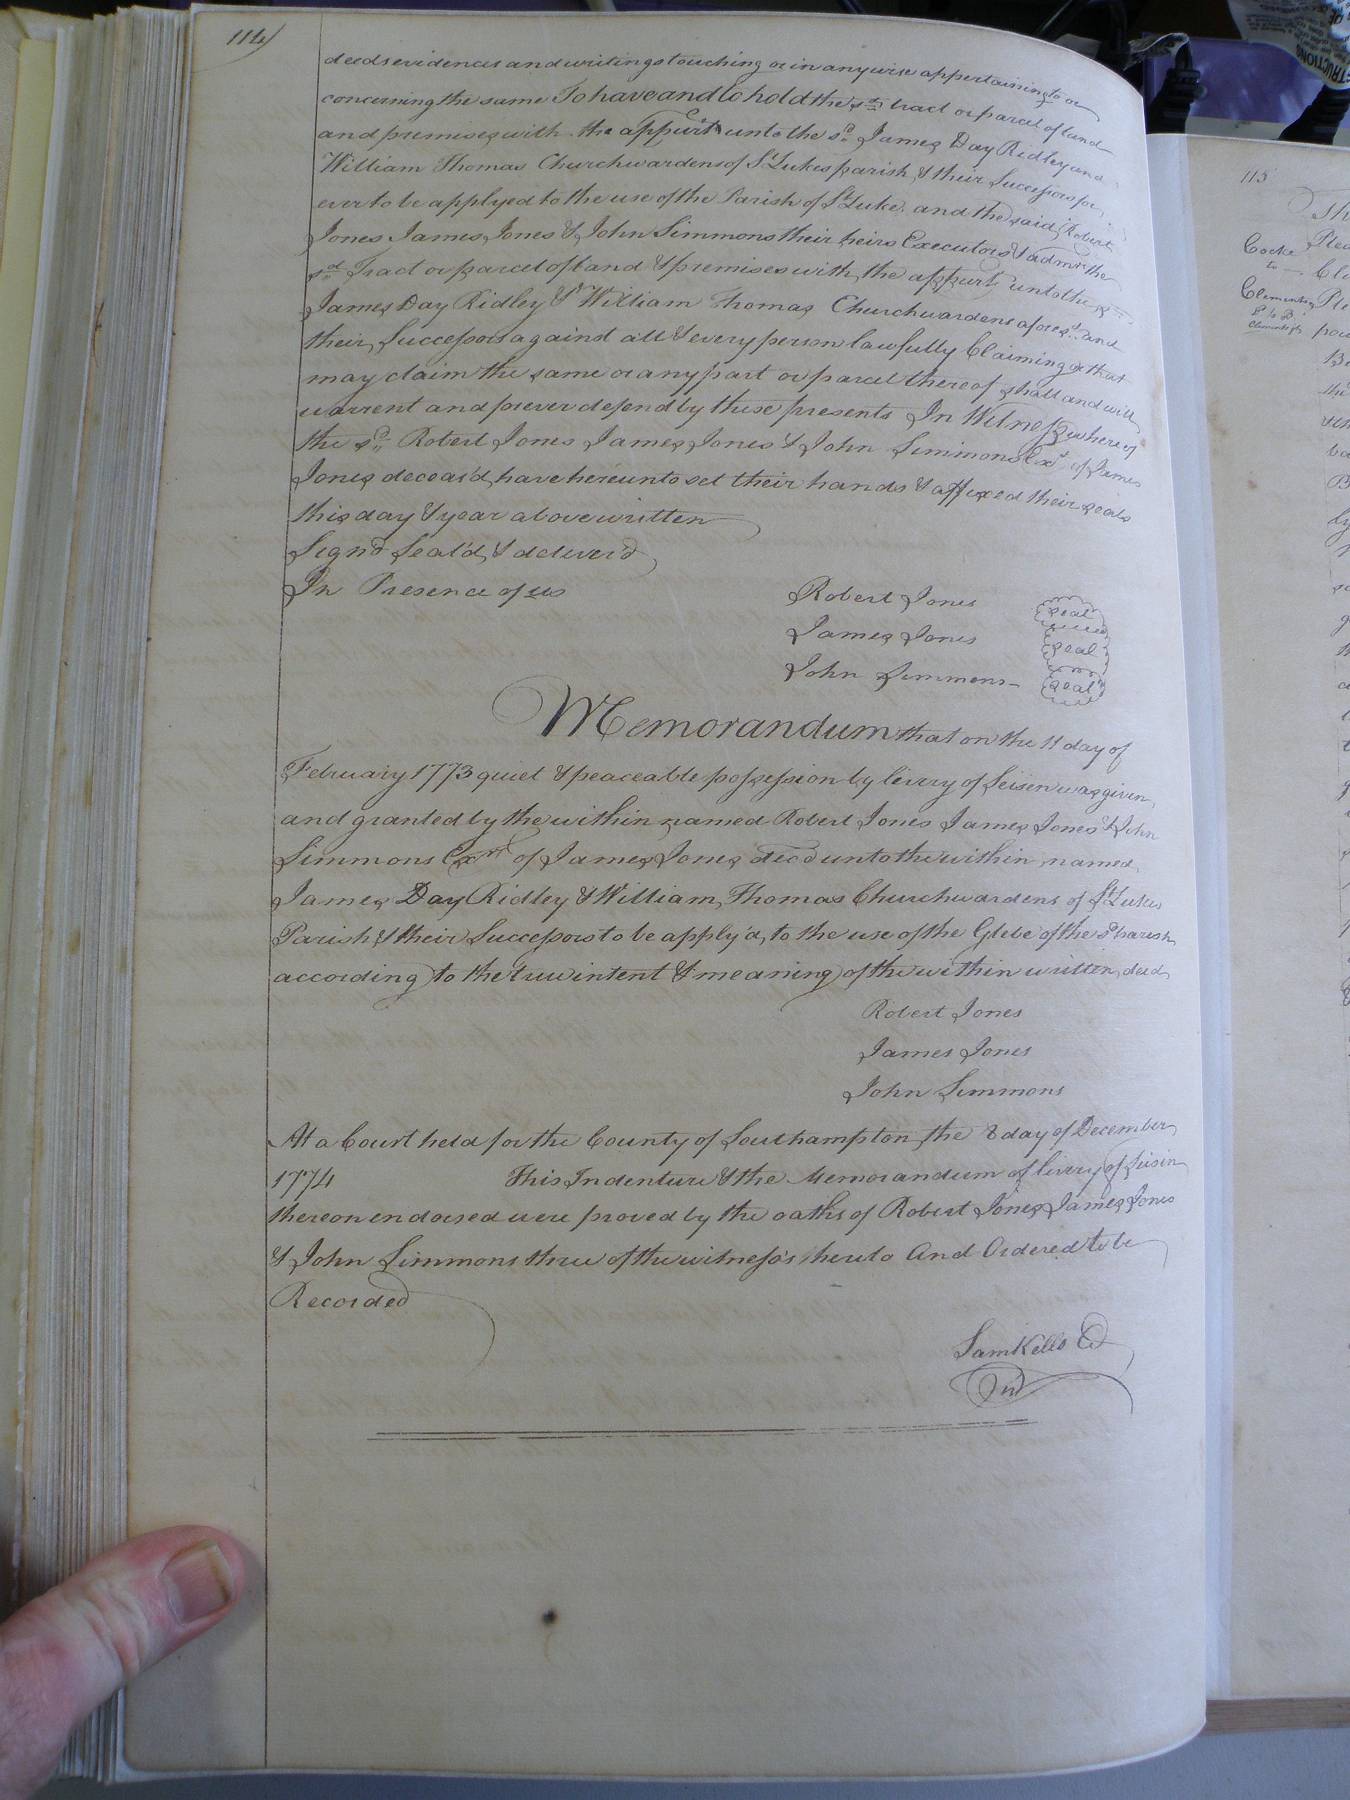 114
deeds evidences and writings touching or in any wise appertaining to or
concerning the same To have and to hold the sd. tract or parcel of land
and premises with the appurts unto the sd. James Day Ridley and
William Thomas Churchwardens of St. Lukes parish & their Successors for
ever to be applyed to the use of the Parish of St. Luke. and the said Robert
Jones James Jones & John Simmons their heirs Executors & admrs the
sd. Tract or parcel of land & premises with the appurts unto the sd.
James Day Ridley & William Thomas Churchwardens aforesd. and
their Successors against all & every person lawfully Claiming or that
may claim the same or any part or parcel thereof shall and will
warrent and forever defend by these presents In Witness whereof
the sd. Robert Jones James Jones & John Simmons Exrs of James
Jones deceas'd have hereunto set their hands & affixed their seals
this day & year above written
Signd Seal'd & deliver'd
In Presence of us
Robert Jones seal
James Jones seal
John Simmons seal
Memorandum that on the 11 day of
February 1773 quiet & peaceable possession by livery of Seisen was given
and granted by the within named Robert Jones James Jones & John
Simmons Exrs of James Jones decd unto the within named
James Day Ridley & William Thomas Churchwardens of St. Lukes
Parish & their Successors to be apply'd to the use of the Glebe of the sd. Parish
according to the true intent & meaning of the within written deed
Robert Jones
James Jones
John Simmons
At a Court held for the County of Southampton the 8 day of December
1774 This Indenture & the Memorandum of livery of Seisin
thereon endorsed were proved by the oaths of Robert Jones James Jones
& John Simmons three of the witness's hereto And Ordered to be
Recorded
Sam Kello
115
Cocke
to
Clements